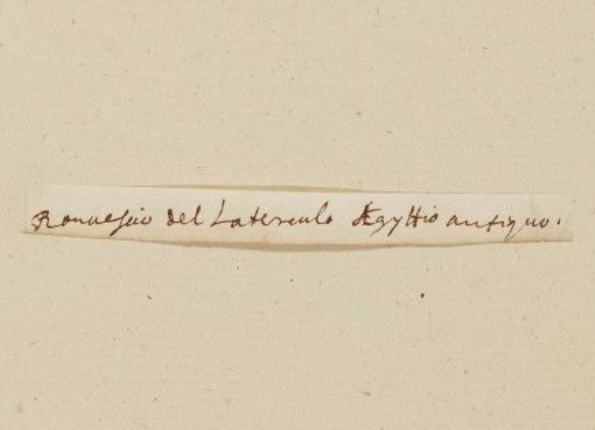 Rouuescio del Laterculo Ægyttio antiquo.